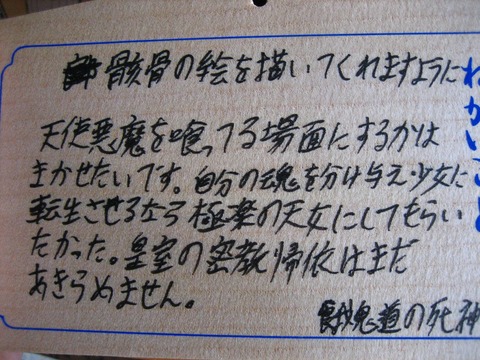 骸骨の絵を描いてくれますように
天使悪魔を喰ってる場面にするかは
まかせたいです。自分の魂を分け与え少女に
転生させるなら極楽の天女にしてもらい
たかった。皇室の密教帰依はまだ
あきらめません。
餓鬼道の死神
ねがいごと